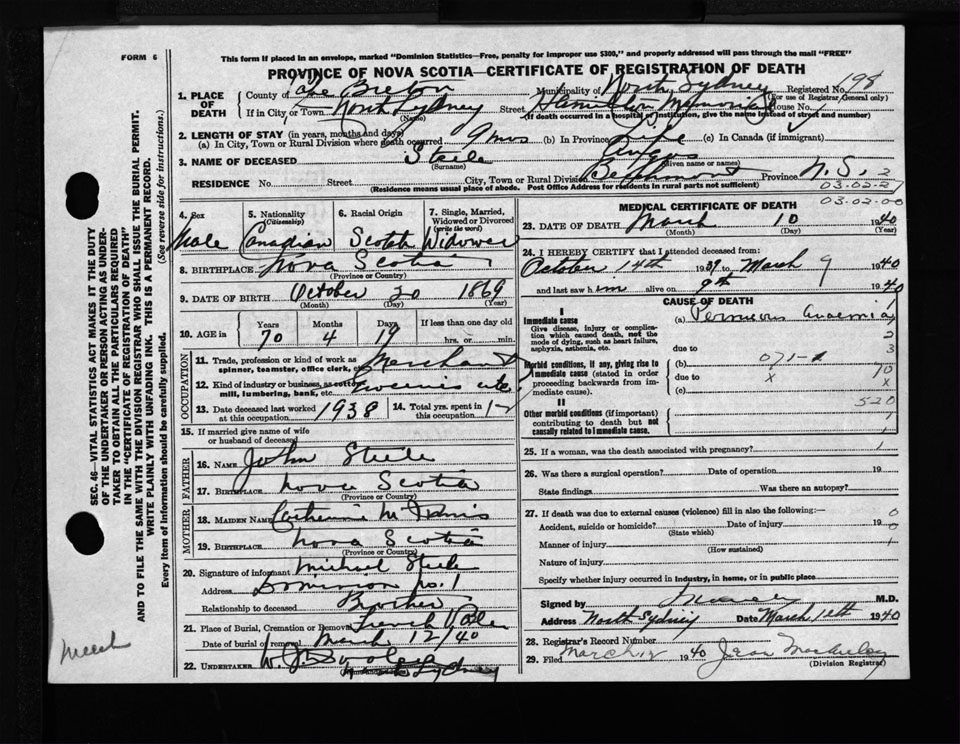 FORM 6
This form if placed in an envelope, marked "Dominion Statistics—Free, penalty for improper use $300," and properly addressed will pass through the mail "FREE"
PROVINCE OF NOVA SCOTIA—CERTIFICATE OF REGISTRATION OF DEATH
SEC. 46—VITAL STATISTICS ACT MAKES IT THE DUTY
OF THE UNDERTAKER OR PERSON ACTING AS UNDER-
TAKER TO OBTAIN ALL THE PARTICULARS REQUIRED
IN THE "CERTIFICATE OF REGISTRATION OF DEATH"
AND TO FILE THE SAME WITH THE DIVISION REGISTRAR WHO SHALL ISSUE THE BURIAL PERMIT.
WRITE PLAINLY WITH UNFADING INK. THIS IS A PERMANENT RECORD.
Every item of information should be carefully supplied. (See reverse side for instructions.)
1. PLACE OF DEATH County of Cape Breton Municipality of North Sydney Registered No. 198
(For use of Registrar General only)
If in City, or Town North Sydney Street Hamilton Memorial House No.
(Name) (If death occurred in a hospital or institution, give the name instead of street and number)
2. LENGTH OF STAY (in years, months and days)
(a) In City, Town or Rural Division where death occurred 9 mos (b) In Province Life (c) In Canada (if immigrant)
3. NAME OF DECEASED Steele Angus
(Surname) (Given name or names)
RESIDENCE No. Street City, Town or Rural Division Province N.S. 2
(Residence means usual place of abode. Post Office Address for residents in rural parts not sufficient)
03-02-21
03-02-00
4. Sex 5. Nationality (Citizenship) 6. Racial Origin 7. Single, Married, Widowed or Divorced (write the word)
Male Canadian Scotch Widower
8. BIRTHPLACE Nova Scotia
(Province or Country)
9. DATE OF BIRTH October 20 1869
(Month) (Day) (Year)
10. AGE in Years Months Days If less than one day old
70 4 19 hrs. or min.
OCCUPATION
11. Trade, profession or kind of work as spinner, teamster, office clerk, etc. Merchant
12. Kind of industry or business, as cotton mill, lumbering, bank, etc.
13. Date deceased last worked at this occupation 1938 14. Total yrs. spent in this occupation
15. If married give name of wife or husband of deceased
FATHER
16. NAME John Steele
17. BIRTHPLACE Nova Scotia
(Province or Country)
MOTHER
18. MAIDEN NAME Catherine
19. BIRTHPLACE Nova Scotia
(Province or Country)
20. Signature of informant Michael Steele
Address Dominion No. 1
Relationship to deceased Brother
21. Place of Burial, Cremation or Removal French Vale
Date of burial or removal March 12/40
22. UNDERTAKER Sydney
MEDICAL CERTIFICATE OF DEATH
23. DATE OF DEATH March 10 1940
(Month) (Day) (Year)
24. I HEREBY CERTIFY that I attended deceased from:
October 14th 1939 to March 9 1940
and last saw him alive on 9th 1940
CAUSE OF DEATH
I
Immediate cause
Give disease, injury or complication which caused death, not the mode of dying, such as heart failure, asphyxia, asthenia, etc.
(a) Pernicious Anaemia 1
2
due to 3
Morbid conditions, if any, giving rise to immediate cause (stated in order proceeding backwards from immediate cause).
(b) 071-1
10
due to x x
(c) 520
II
Other morbid conditions (if important) contributing to death but not causally related to immediate cause. 1
25. If a woman, was the death associated with pregnancy? 1
26. Was there a surgical operation? Date of operation 19
State findings Was there an autopsy?
27. If death was due to external causes (violence) fill in also the following:— 0
Accident, suicide or homicide? Date of injury 19 0
(State which)
Manner of injury 1
(How sustained)
Nature of injury
Specify whether injury occurred in industry, in home, or in public place
Signed by M.D.
Address North Sydney Date March 11th 1940
28. Registrar's Record Number
29. Filed March 12 1940 Jean
(Division Registrar)